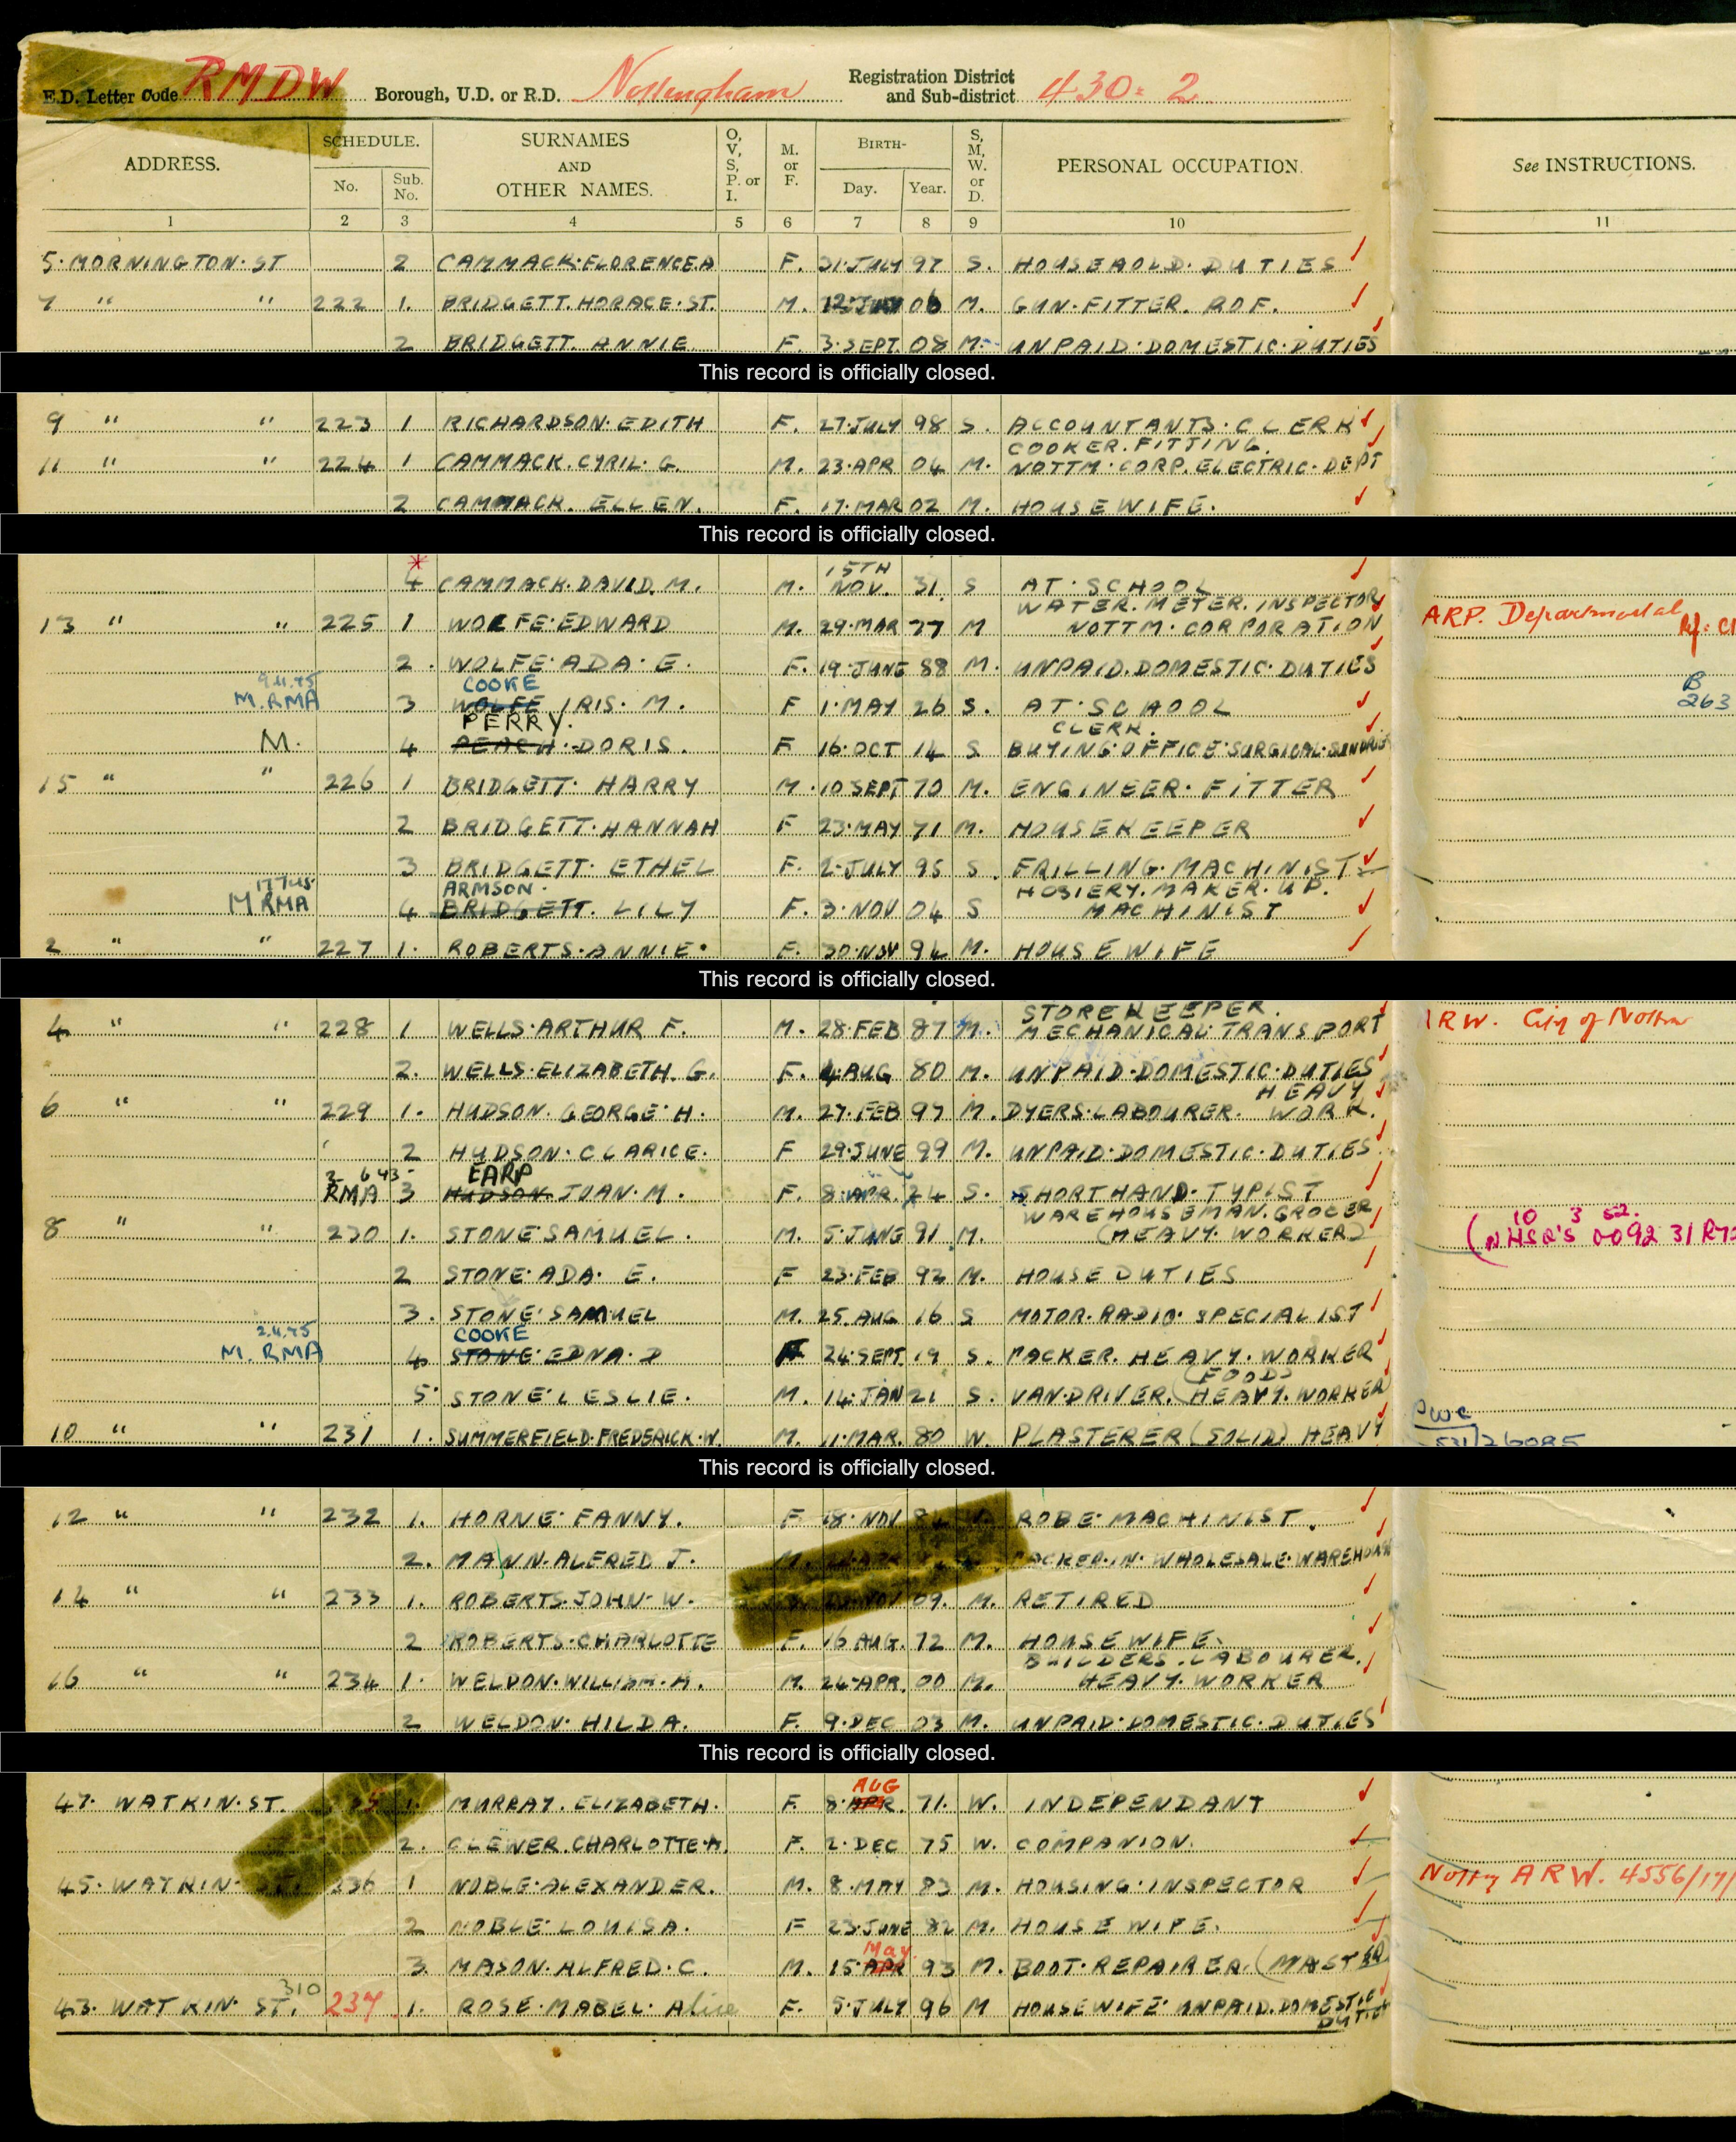 E.D. Letter Code RMDW Borough, U.D. or R.D. Nottingham Registration District and Sub-district 430: 2
ADDRESS. SCHEDULE. No. Sub. No. SURNAMES AND OTHER NAMES. O, V, S, P. or I. M. or F. BIRTH- Day. Year. S, M, W. or D. PERSONAL OCCUPATION. See INSTRUCTIONS.
1 2 3 4 5 6 7 8 9 10 11
5. MORNINGTON. ST 2 CAMMACK. FLORENCE. A F. 31. JULY 97 S. HOUSEHOLD. DUTIES
7 " " 222 1. BRIDGETT. HORACE. ST. M. 06 M. GUN. FITTER. ROF.
2 BRIDGETT. ANNIE F. 3. SEPT. 08 M. UNPAID. DOMESTIC. DUTIES
This record is officially closed.
9 " " 223 1 RICHARDSON. EDITH F. 27. JULY 98 S. ACCOUNTANTS. CLERK
COOKER. FITTING.
11 " " 224 1 CAMMACK. CYRIL. G. M. 23. APR 04 M. NOTTM. CORP. ELECTRIC. DEPT
2 CAMMACK. ELLEN. F. 17. MAR 02 M. HOUSEWIFE.
This record is officially closed.
15TH
4 CAMMACK. DAVID. M. M. NOV. 31 S AT. SCHOOL
WATER. METER. INSPECTOR
13 " " 225 1 WOLFE. EDWARD M. 29. MAR 77 M NOTTM. CORPORATION ARP. Departmental
2. WOLFE. ADA. E. F. 19. JUNE 88 M. UNPAID. DOMESTIC. DUTIES
9.11.45 COOKE B
M. RMA 3 WOLFE IRIS. M. F 1. MAY 26 S. AT. SCHOOL 263
PERRY. CLERK.
M. 4 PEACH. DORIS. F 16. OCT 14 S BUYING. OFFICE. SURGICAL. SUNDRIES
15 " " 226 1 BRIDGETT. HARRY M. 10 SEPT 70 M. ENGINEER. FITTER
2 BRIDGETT. HANNAH F 23. MAY 71 M. HOUSEKEEPER
3 BRIDGETT. ETHEL F. 2. JULY 95 S. FRILLING. MACHINIST
ARMSON. HOSIERY. MAKER. UP.
M RMA 4 BRIDGETT. LILY F. 3. NOV 04 S MACHINIST
2 " " 227 1. ROBERTS. ANNIE. F. 30. NOV 94 M. HOUSEWIFE
This record is officially closed.
STOREKEEPER.
4 " " 228 1 WELLS. ARTHUR F. M. 28. FEB 87 M. MECHANICAL. TRANSPORT ARW. City of Nottm
2. WELLS. ELIZABETH. G. F. 4. AUG 80 M. UNPAID. DOMESTIC. DUTIES
HEAVY
6 " " 229 1. HUDSON. GEORGE. H. M. 27. FEB 97 M. DYERS. LABOURER. WORK.
2 HUDSON. CLARICE. F 29. JUNE 99 M. UNPAID. DOMESTIC. DUTIES.
2 6 43 EARP
RMA 3 HUDSON. JOAN. M. F. 8. APR. 24 S. SHORTHAND. TYPIST
WAREHOUSEMAN. GROCER 10 3 52.
8 " " 230 1. STONE. SAMUEL. M. 5. JUNE 91 M. (HEAVY. WORKER) (NHSR'S 0092 31
2 STONE. ADA. E. F 23. FEB 92 M. HOUSE DUTIES
3. STONE. SAMUEL M. 25. AUG 16 S MOTOR. RADIO. SPECIALIST
2.11.45 COOKE
M. RMA 4 STONE. EDNA. D F 24. SEPT 19 S. PACKER. HEAVY. WORKER
(FOOD)
5. STONE. LESLIE. M. 14. JAN 21 S. VAN. DRIVER. (HEAVY. WORKER)
10 " " 231 1. SUMMERFIELD. FREDERICK. W. M. 11. MAR. 80 W. PLASTERER (SOLID) HEAVY
This record is officially closed.
12 " " 232 1. HORNE. FANNY. F 18. NOV ROBE. MACHINIST.
2. MANN. ALFRED J. M. PACKER. IN. WHOLESALE. WAREHOUSE
14 " " 233 1. ROBERTS. JOHN. W. 09. M. RETIRED
2 ROBERTS. CHARLOTTE F. 16 AUG. 72 M. HOUSEWIFE.
BUILDERS. LABOURER.
16 " " 234 1. WELDON. WILLIAM. A. M. 24. APR. 00 M. HEAVY. WORKER
2 WELDON. HILDA. F. 9. DEC 03 M. UNPAID. DOMESTIC. DUTIES
This record is officially closed.
AUG
47. WATKIN. ST. 1. MURRAY. ELIZABETH. F. 8. APR. 71. W. INDEPENDANT
2. CLEWER. CHARLOTTE. A. F. 2. DEC 75 W. COMPANION.
45. WATKIN. ST. 236 1 NOBLE. ALEXANDER. M. 8. MAY 83 M. HOUSING. INSPECTOR ARW. 4556/17/
2 NOBLE. LOUISA. F 23. JUNE 82 M. HOUSEWIFE.
May
3. MASON. ALFRED. C. M. 15. APR 93 M. BOOT. REPAIRER. (MASTER)
310
43. WATKIN. ST. 237 1. ROSE. MABEL. Alice F. 5. JULY 96 M HOUSEWIFE. UNPAID. DOMESTIC
DUTIES